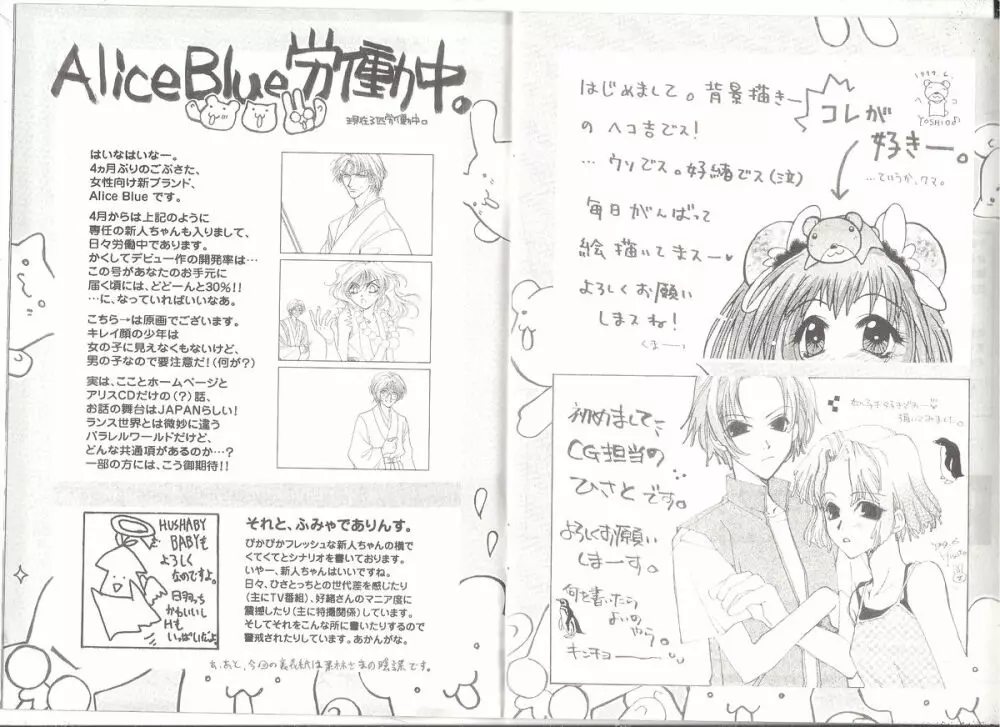 AliceBlue労働中。
現在3匹労働中。
はいなはいなー。
4ヵ月ぶりのごぶさた、
女性向け新ブランド、
Alice Blue です。
4月からは上記のように
専任の新人ちゃんも入りまして、
日々労働中であります。
かくしてデビュー作の開発率は…
この号があなたのお手元に
届く頃には、どどーんと30%!!
…に、なっていればいいなあ。
こちら→は原画でございます。
キレイ顔の少年は
女の子に見えなくもないけど、
男の子なので要注意だ!(何が?)
実は、こことホームページと
アリスCDだけの(?)話、
お話の舞台はJAPANらしい!
ランス世界とは微妙に違う
パラレルワールドだけど、
どんな共通項があるのか…?
一部の方には、こう御期待!!
HUSHABY
BABYも
よろしく
なのですよ。
日羽っち
かわいいし
Hも
いっぱいだよ。
それと、ふみゃでありんす。
ぴかぴかフレッシュな新人ちゃんの横で
くてくてとシナリオを書いております。
いやー、新人ちゃんはいいですね。
日々、ひさとっちとの世代差を感じたり
(主にTV番組)、好緒さんのマニア度に
震撼したり(主に特撮関係)しています。
そしてそれをこんな所に書いたりするので
警戒されたりしています。あかんがな。
あ、あと、今回の裏表紙は栗林さまの陰謀です。
はじめまして。背景描きー
の ヘコ吉でス!
… ウソでス。好緒でス(泣)
毎日がんばって
絵描いてまスー♥
よろしくお願い
しまスね!
くまーっ
コレが
好きー。
…ていうか、クマ。
1999.6.
ヘコ
YOSHIO
初めまして、
CG担当の
ひさとです。
よろしくお願い
しまーす。
何を書いたら
よいの
やら。
キンチョーーー
描いてみました。
1999.6